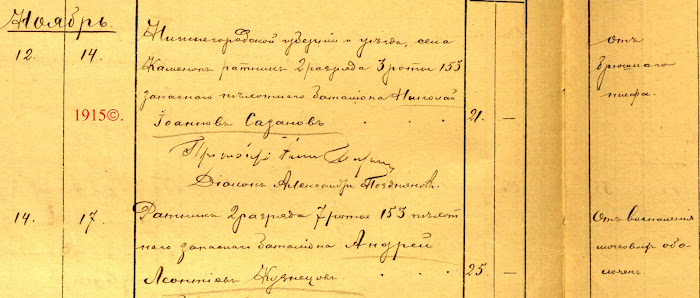 Ноябрь.
12. 14. Нижегородской губернiи и уѣзда, села
Каменокъ ратникъ 2 разряда 3 роты 153
запаснаго пѣхотнаго баталiона Николай
Iоанновъ Сазановъ 21. —
отъ
брюшнаго
тифа.
1915©.
Дiаконъ Александръ Поздняковъ.
14. 17. Ратникъ 2 разряда 7 роты 153 пѣхот
наго запаснаго баталiона Андрей
Леонтiевъ Кузнецовъ. 25. —
Отъ воспаленiя
мозговыхъ обо
лочекъ